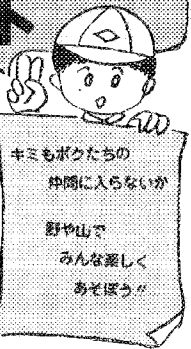 キミもボクたちの
仲間に入らないか
野や山で
みんな楽しく
あそぼう〃